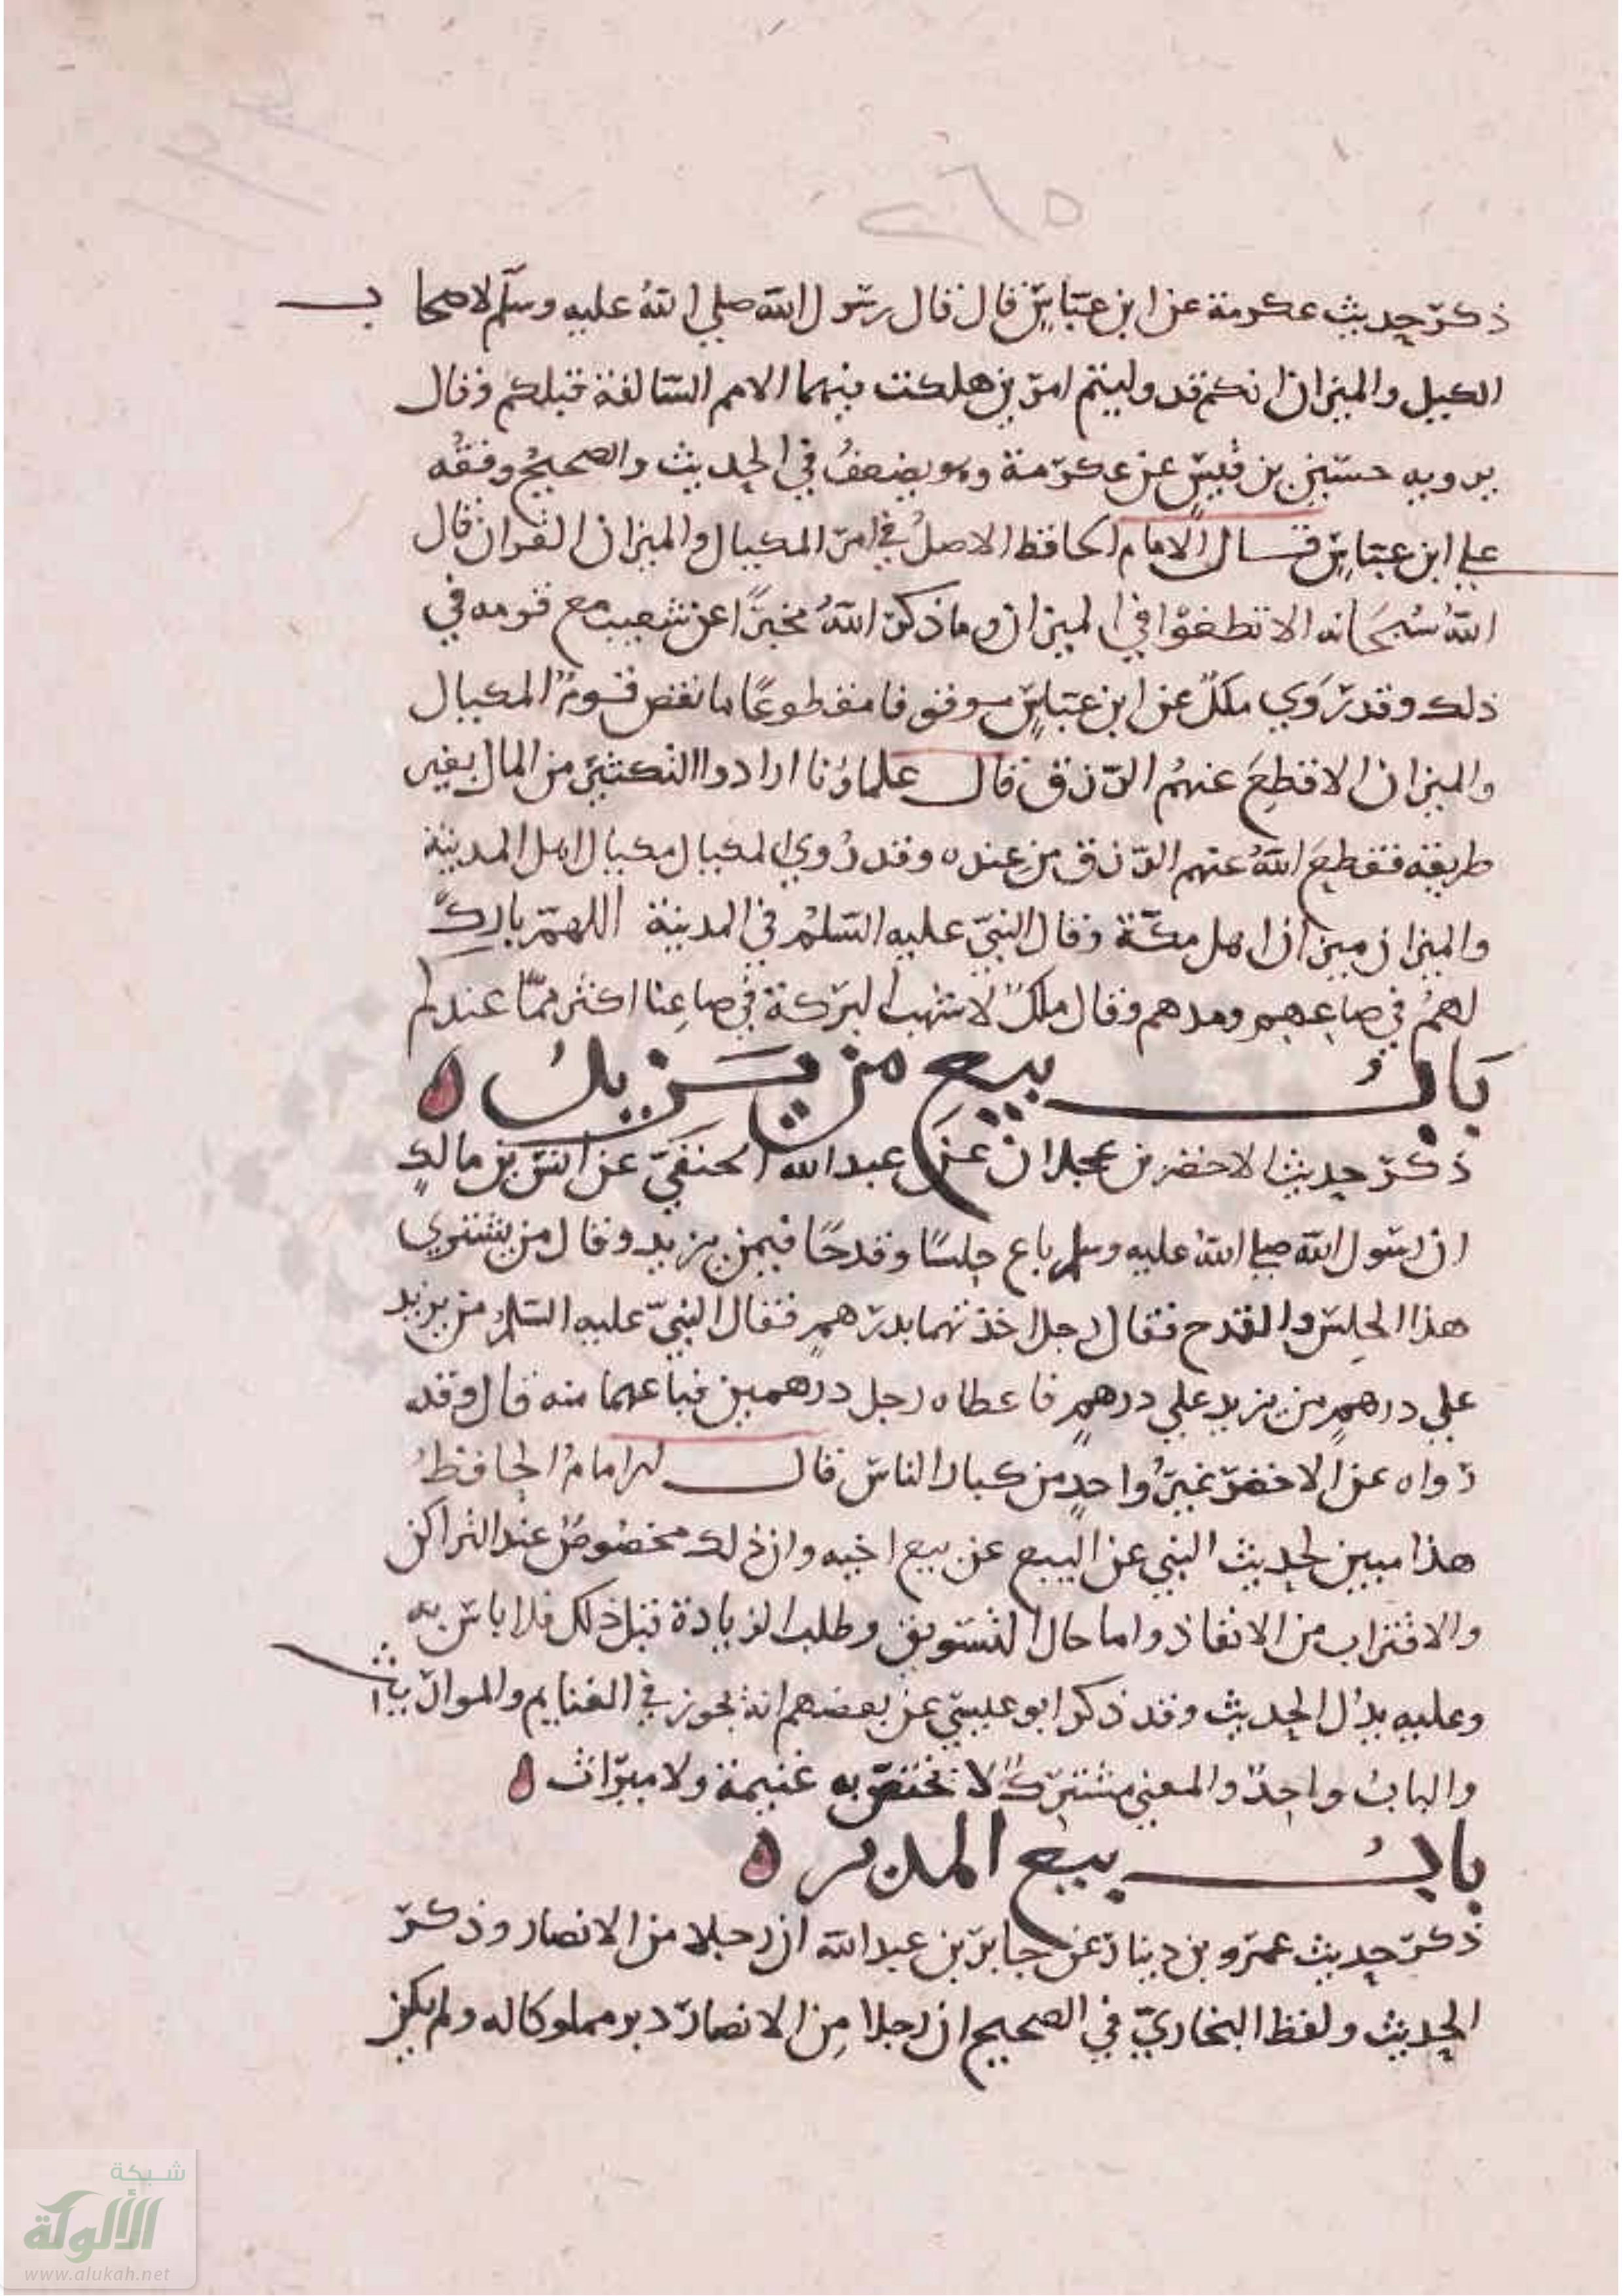 ٢٦٥
ذكر حديث عكرمة عن ابن عباس قال قال رسول الله صلي الله عليه وسلم لاصحاب
الكيل والميزان انكم قد وليتم امرين هلكت فيهما الامم السالفة قبلكم وقال
يرويه حسين بن قيس عن عكرمة وهو يضعف في الحديث والصحيح وقفه
علي ابن عباس قال الامام الحافظ الاصل في امر المكيال والميزان القران قال
الله سبحانه الا تطغوا في الميزان وما ذكر الله مخبرا عن شعيب مع قومه في
ذلك وقد روي ملك عن ابن عباس موقوفا مقطوعا ما نقص قوم المكيال
والميزان الا قطع عنهم الرزق قال علماؤنا ارادوا التكثير من المال بغير
طريقه فقطع الله عنهم الرزق من عنده وقد روي المكيال مكيال اهل المدينة
والميزان ميزان اهل مكة وقال النبي عليه السلم في المدينة اللهم بارك
لهم في صاعهم ومدهم وقال ملك لا شهب البركة في صاعنا اكثر مما عندكم
باب بيع من يزيد ه
ذكر حديث الاخضر بن عجلان عن عبد الله الحنفي عن انس بن مالك
ان رسول الله صلي الله عليه وسلم باع حلسا وقدحا فيمن يزيد وقال من يشتري
هذا الحلس والقدح فقال رجل اخذتهما بدرهم فقال النبي عليه السلم من يزيد
علي درهم من يزيد علي درهم فاعطاه رجل درهمين فباعهما منه قال وقد
رواه عن الاخضر غير واحد من كبار الناس قال الامام الحافظ
هذا مبين لحديث النهي عن البيع عن بيع اخيه وان ذلك مخصوص عند التراكن
والاقتراب من الانفاذ واما حال التسويق وطلب الزيادة قبل ذلك فلا باس به
وعليه يدل الحديث وقد ذكر ابو عيسي عن بعضهم انه يجوز في الغنايم والمواريث
والباب واحد والمعني مشترك لا تختص به غنيمة ولا ميراث ه
باب بيع المدبر ه
ذكر حديث عمرو بن دينار عن جابر بن عبد الله ان رجلا من الانصار وذكر
الحديث ولفظ البخاري في الصحيح ان رجلا من الانصار دبر مملوكا له ولم يكن
شبكة
الألوكة
www.alukah.net